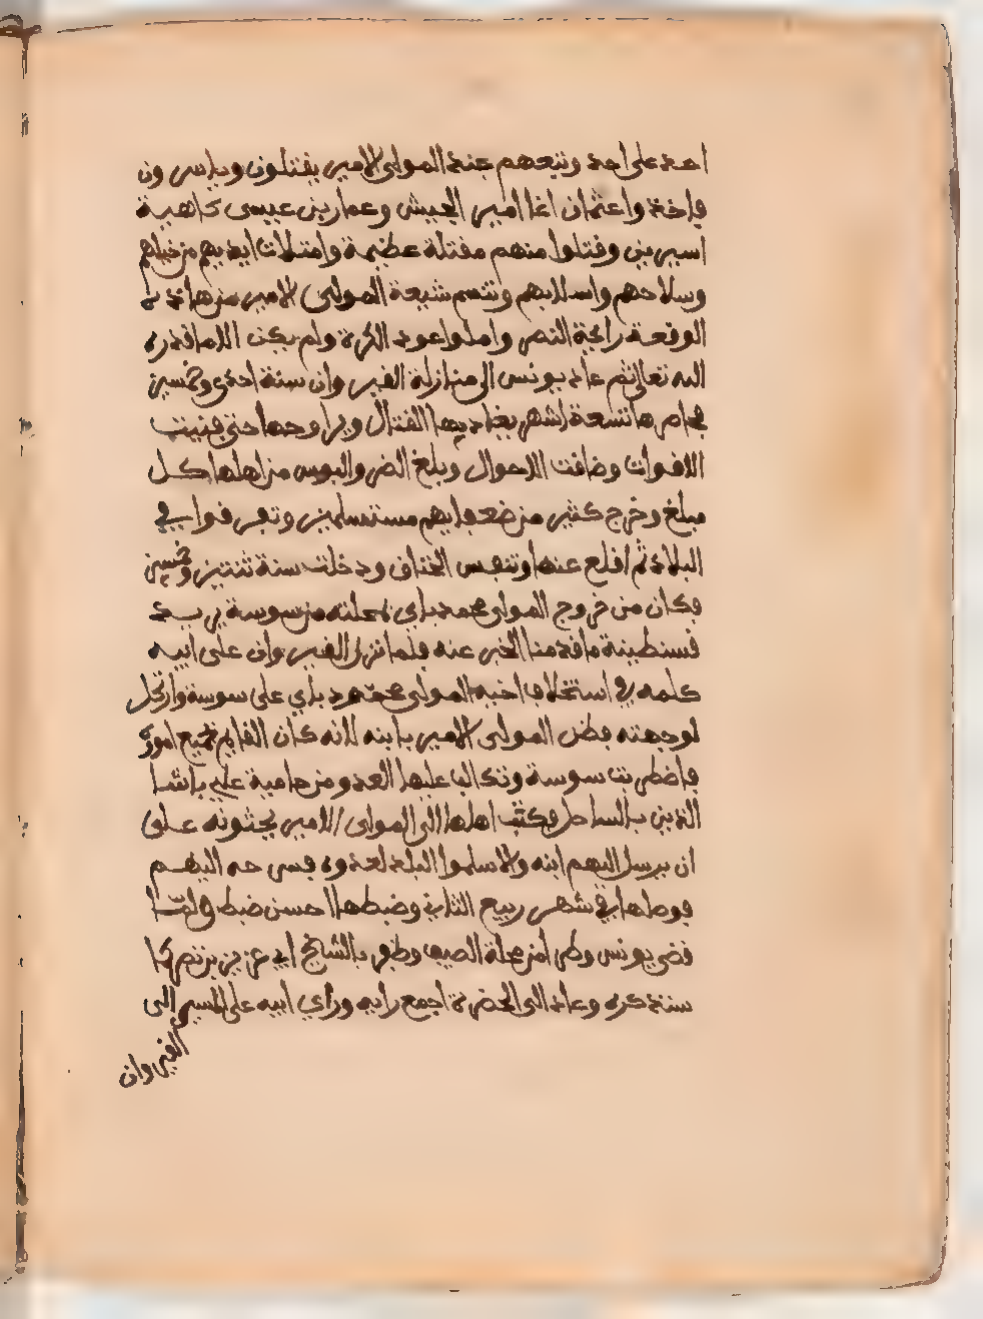 احد على احد وتبعهم جند المولى الامير يقتلون وياسرون
فاخذوا عثمان اغا امير الجيش وعمار بن عيسى كاهية
اسيرين وقتلوا منهم مقتلة عظيمة وامتلات ايديهم من خيلهم
وسلاحهم واسلابهم وتنسم شيعة المولى الامير من هاذه
الوقعة رائحة النصر واملوا عود الكرة ولم يكن الا ما قدره
الله تعالى ثم عاد يونس الى منازلة القيروان سنة احدى وخمسين
فحاصرها تسعة اشهر يغاديها القتال ويراوحها حتى فنيت
الاقوات وضاقت الاحوال وبلغ الضر والبوس من اهلها كل
مبلغ وخرج كثير من ضعفايهم مستسلمين وتفرقوا في
البلاد ثم اقلع عنها وتنفس الخناق ودخلت سنة ثنتين وخمسين
فكان من خروج المولى محمد باي بمحلته من سوسة يريد
قسنطينة ما قدمنا الخبر عنه فلما نزل القيروان على ابيه
كلمه في استخلاف اخيه المولى محمود باي على سوسة وارتحل
لوجهته فضن المولى الامير بابنه لانه كان القايم بجميع اموره
فاضطربت سوسة وتكالب عليها العدو من حامية علي باشا
الذين بالساحل فكتب اهلها الى المولى الامير يحثونه على
ان يرسل اليهم ابنه والا سلموا البلد لعدوه فسرحه اليهم
فوصلها في شهر ربيع الثاني وضبطها احسن ضبط ولما
قضى يونس وطرا من محلة الصيف وظفر بالشايخ ابي عزيز بن نصر كما
سنذكره وعاد الى الحضرة اجمع رايه وراي ابيه على المسير الى
القيروان